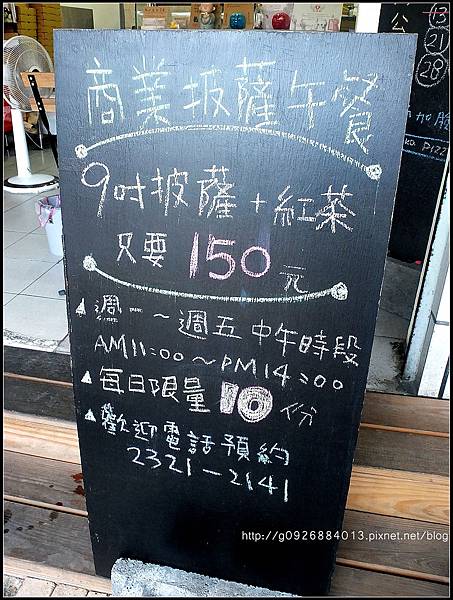 商業披薩午餐
9吋披薩+紅茶
只要150元
週一～週五中午時段
AM11:00～PM14:00
每日限量10份
歡迎電話預約
2321-2141
公
13
21
28
PIZZ
http://g0926884013.pixnet.net/blog